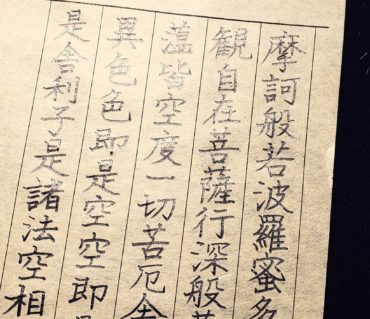 摩訶般若波羅蜜多
観自在菩薩行深般若
薀皆空度一切苦厄舎
異色色即是空空即是
是舎利子是諸法空相